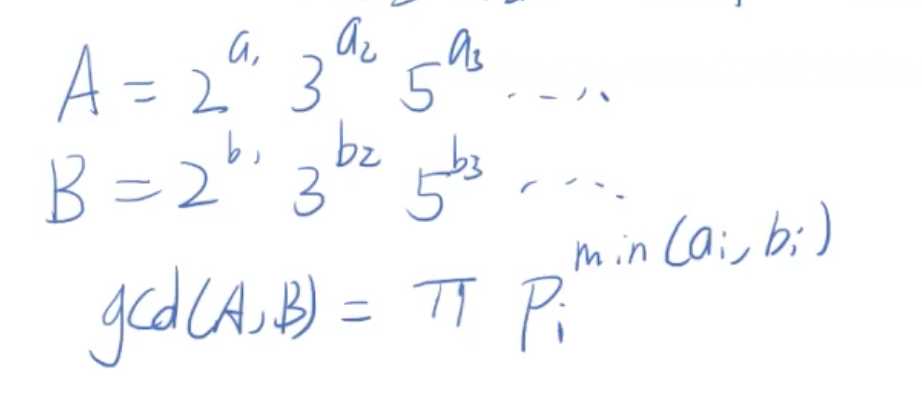 A = 2^{a_1} 3^{a_2} 5^{a_3} ....
B = 2^{b_1} 3^{b_2} 5^{b_3} ....
gcd(A,B) = π P_i^{min(a_i, b_i)}